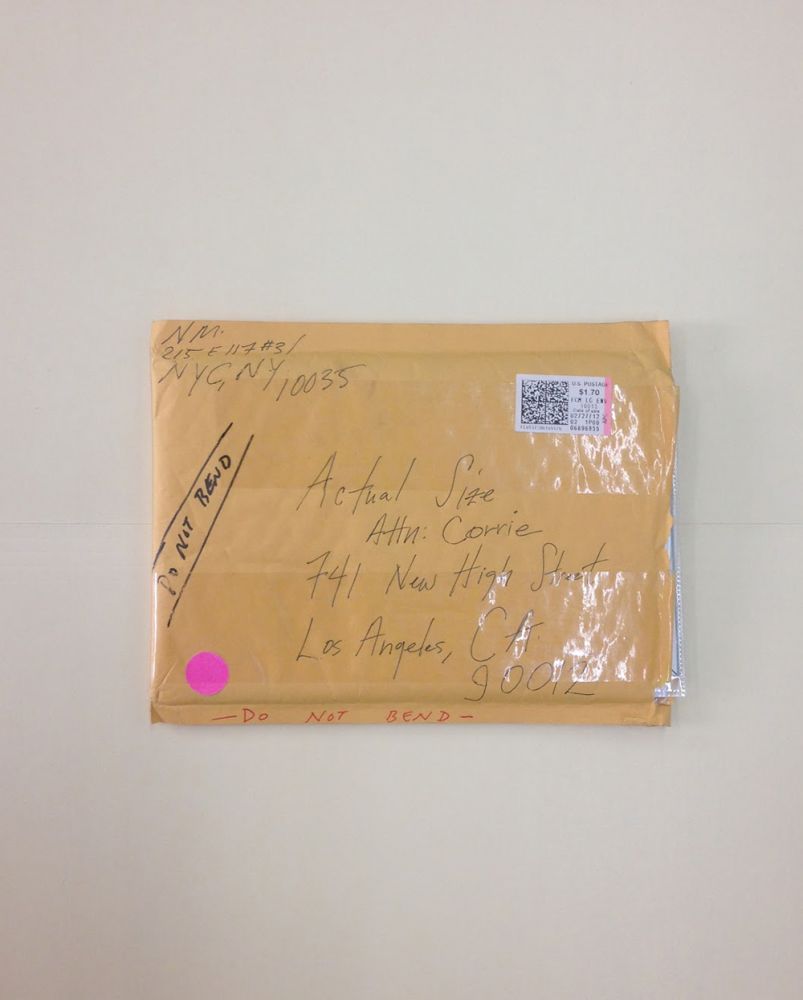 N M.
215 E 117 #31
NYC, NY 10035
U.S. POSTAGE
$1.70
FCM LG ENV
10035
Date of sale
02/27/12
06896959
DO NOT BEND
Actual Size
Attn: Corrie
741 New High Street
Los Angeles, CA.
90012
—DO NOT BEND—